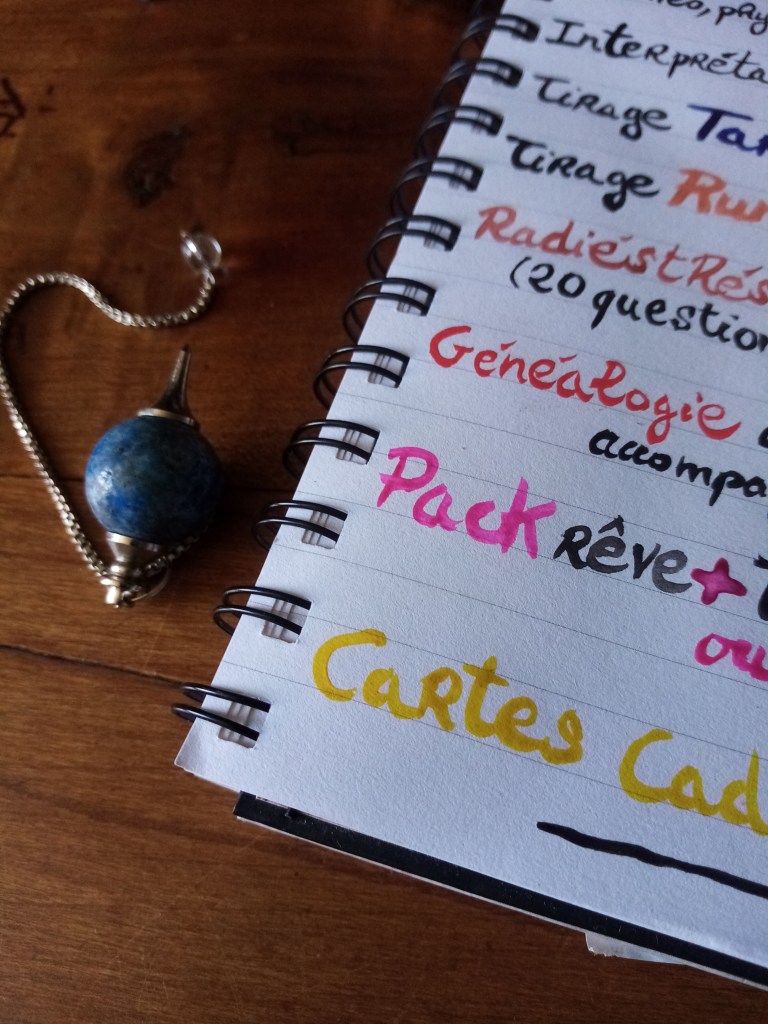 Interpréta
Tirage Tar
Tirage Run
RadiéstRés
(20 question
Généalogie
accompa
Pack rêve+
ou
Cartes Cad